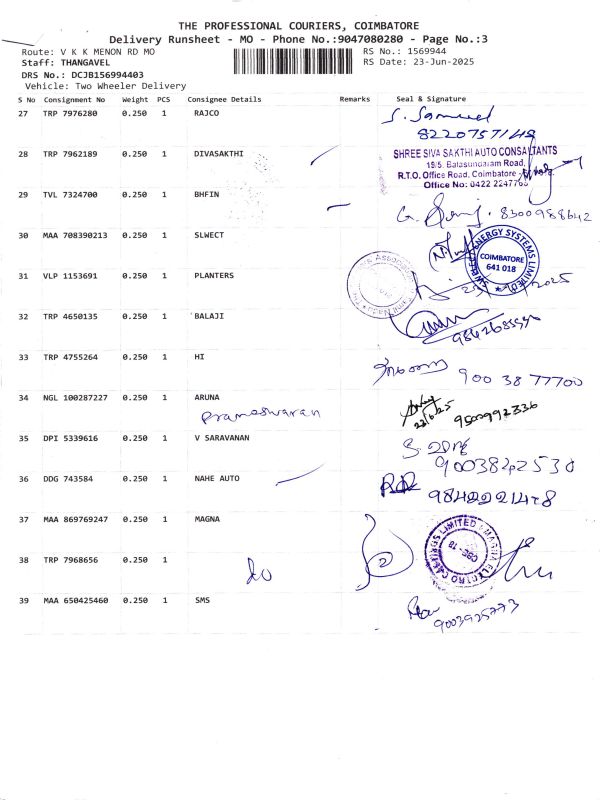 THE PROFESSIONAL COURIERS, COIMBATORE
Delivery Runsheet - MO - Phone No.:9047080280 - Page No.:3
Route: V K K MENON RD MO
RS No.: 1569944
Staff: THANGAVEL
RS Date: 23-Jun-2025
DRS No.: DCJB156994403
Vehicle: Two Wheeler Delivery
S No Consignment No Weight PCS Consignee Details Remarks Seal & Signature
27 TRP 7976280 0.250 1 RAJCO S. Samuel
8220757148
28 TRP 7962189 0.250 1 DIVASAKTHI SHREE SIVA SAKTHI AUTO CONSULTANTS
19/5, Balasundaram Road,
R.T.O. Office Road, Coimbatore
Office No: 0422 2247766
29 TVL 7324700 0.250 1 BHFIN
8300988642
30 MAA 708390213 0.250 1 SLWECT
ENERGY SYSTEMS LIMITED
COIMBATORE
641 018
31 VLP 1153691 0.250 1 PLANTERS
32 TRP 4650135 0.250 1 BALAJI
33 TRP 4755264 0.250 1 HI
900 38 77700
34 NGL 100287227 0.250 1 ARUNA
Prameswaran
9500992336
35 DPI 5339616 0.250 1 V SARAVANAN
9003842530
36 DDG 743584 0.250 1 NAHE AUTO
9842221478
37 MAA 869769247 0.250 1 MAGNA
38 TRP 7968656 0.250 1
39 MAA 650425460 0.250 1 SMS
9003925773